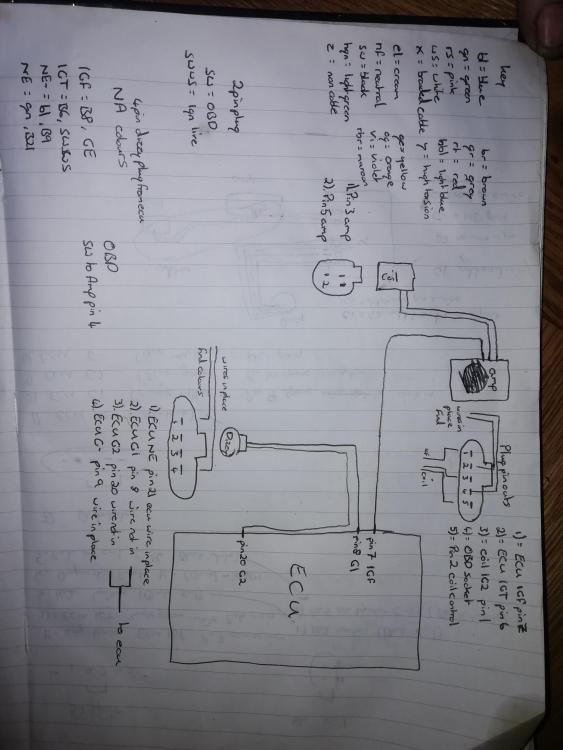 key
bl = blue
gn = green
rs = pink
ws = white
x = braided cable
br = brown
gr = grey
rt = red
hbl = light blue
y = high tension
el = cream
nf = neutral
sw = black
hgn = light green
z = non cable
ge = yellow
og = orange
vi = violet
rbr = maroon
2 pin plug
SW = OBD
SWWS = Ign live
4 pin dizzy plug from ecu
NA colours
IGF = B8, GE
IGT = B6, SWWS
NE- = bl, B9
NE = gn, B21
1) Pin 3 amp
2) Pin 5 amp
1
2
coil
amp
wires in place
Fuel
Plug pin outs
1 2 3 4 5
coil
1) = ECU IGF pin 7
2) = ECU IGT pin 6
3) = coil IG2 pin 1
4) = OBD socket
5) = Pin 2 coil control
OBD
SW to Amp pin 4
wires in place
Fuel colours
Dizzy
1 2 3 4
1) ECU NE pin 21 ecu wire in place
2) ECU G1 pin 8 wire nd in
3) ECU G2 pin 20 wire nd in
4) ECU G- pin 9 wire in place
to ecu
pin 7 IGF
pin 8 G1
pin 20 G2
ECU